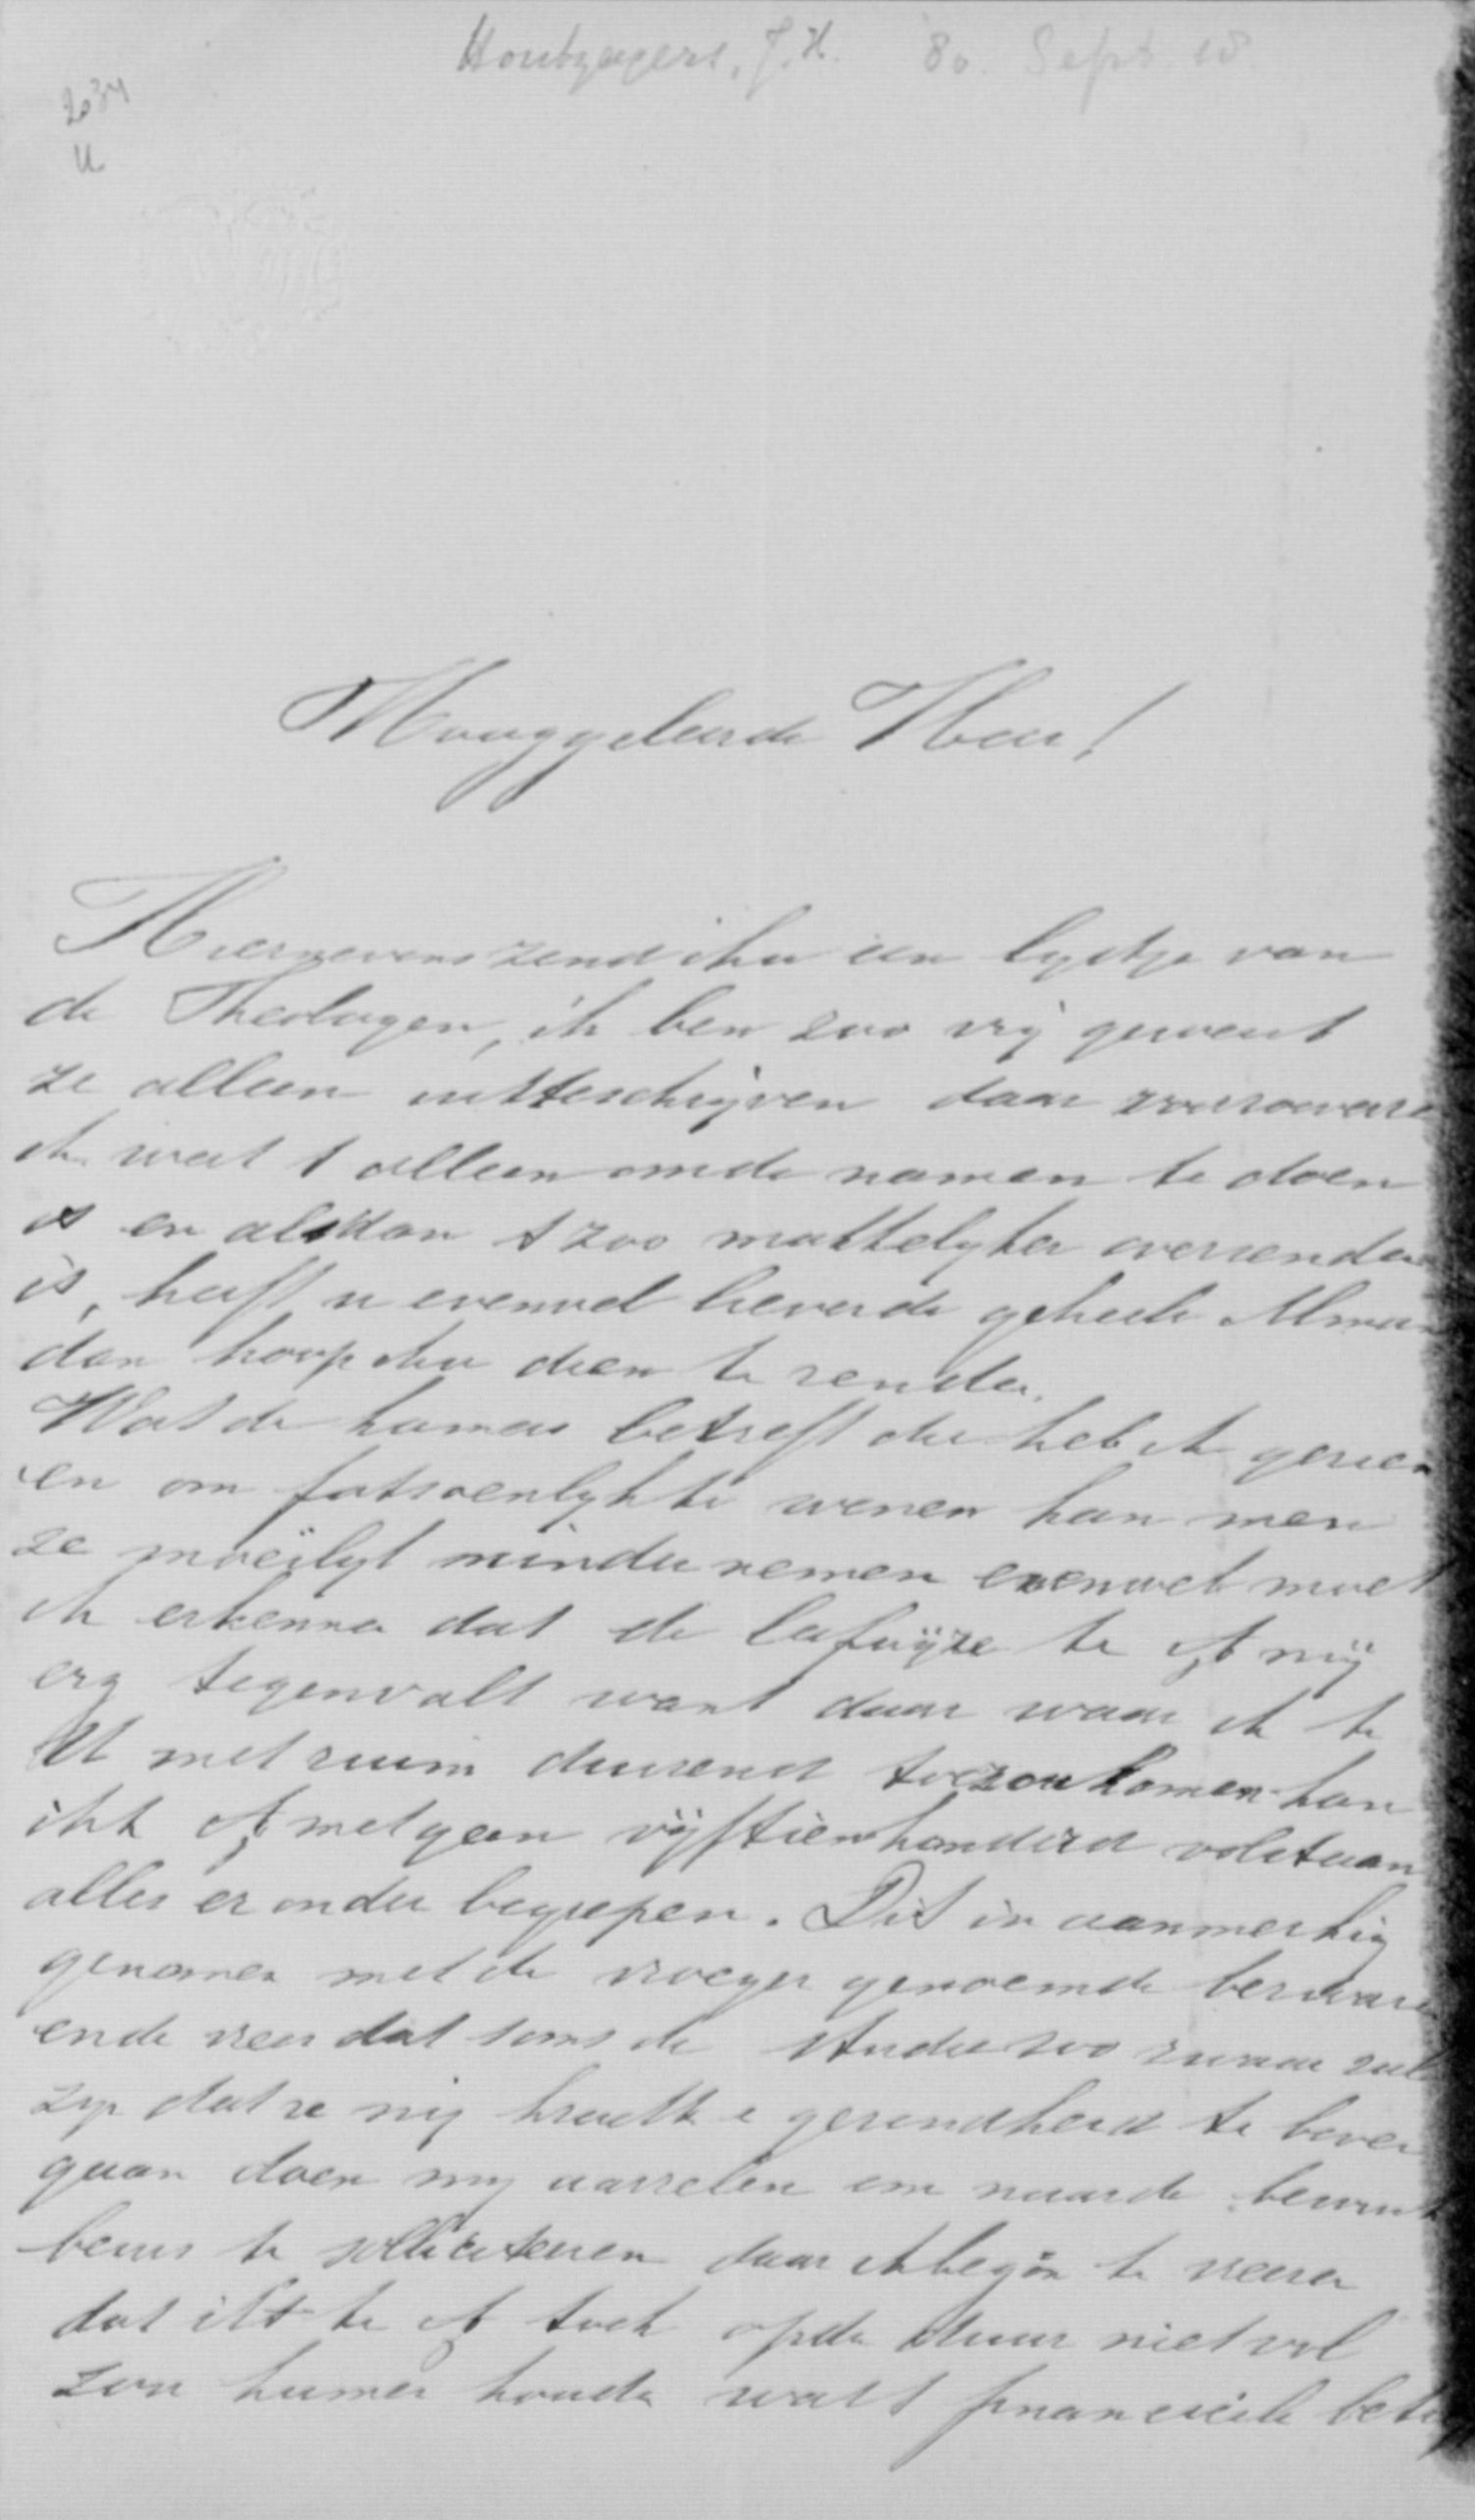 Houtzagers, J.H. 80. Sept. 18
2034
U
Hooggeleerde Heer!
Hiernevens zend ik u een lystje van
de Theologen, ik ben zoo vrij geweest
ze alleen uitteschrijven daar
ik weet t alleen om de namen te doen
is en alsdan t zoo makkelyker overzenden
is, heeft u evenwel liever de geheele Alman
dan hoop ik u dien te zenden.
Wat de kamers betreft die heb ik gezien
en om fatsoenlijk te wonen kan men
ze moeilyk minder nemen evenwel moet
ik erkennen dat de lefwijze te A mij
erg tegenvalt want daar waar ik te
U met ruim duizend toe zou komen kan
ik t A met geen vijftienhonderd volstaan
alles er onder begrepen. Dit in aanmerking
genomen met de vroeger genoemde bezwaren
en de vrees dat soms de studie zoo zwaar zal
zyn dat ze mij kracht & gezondheid te boven
gaan doen my aarzelen om naar de
beurs te solliciteeren daar ik begin te vreezen
dat ik t te A toch op de duur niet vol
zou kunnen houden wat t financieele betr